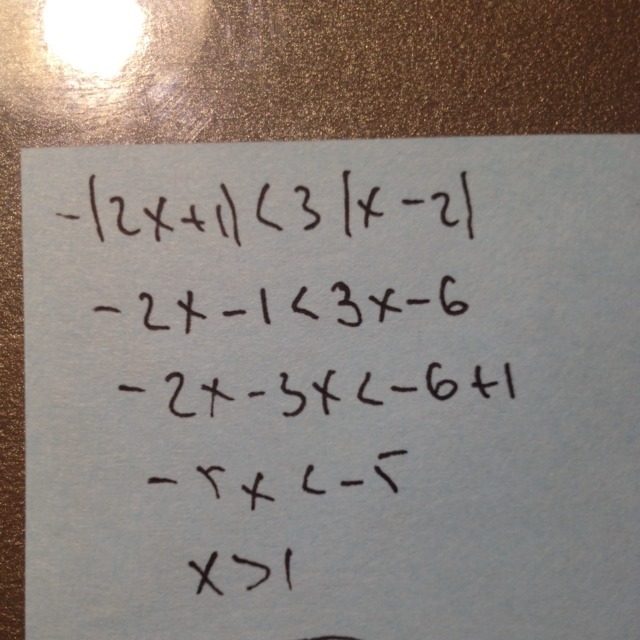 -|2x+1|<3|x-2|
-2x-1<3x-6
-2x-3x<-6+1
-5x<-5
x>1